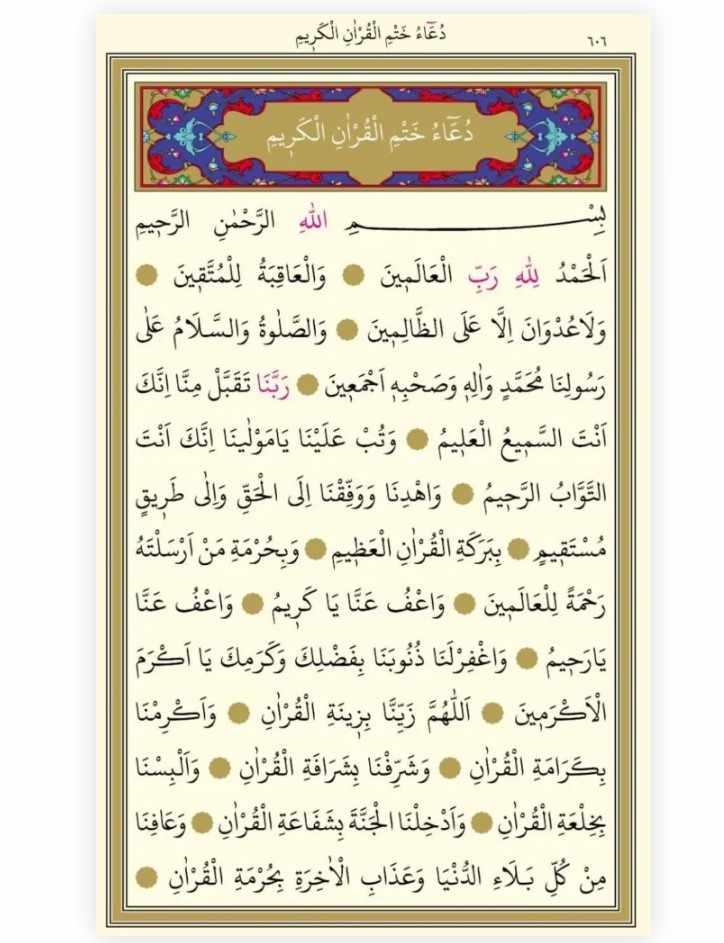 دُعَٓاءُ خَتْمِ الْقُرْاٰنِ الْكَرٖيمِ
٦٠٦
دُعَٓاءُ خَتْمِ الْقُرْاٰنِ الْكَرٖيمِ
بِسْمِ اللّٰهِ الرَّحْمٰنِ الرَّحٖيمِ
اَلْحَمْدُ لِلّٰهِ رَبِّ الْعَالَمٖينَ ۞ وَالْعَاقِبَةُ لِلْمُتَّقٖينَ ۞
وَلَاعُدْوَانَ اِلَّا عَلَى الظَّالِمٖينَ ۞ وَالصَّلٰوةُ وَالسَّلَامُ عَلٰى
رَسُولِنَا مُحَمَّدٍ وَاٰلِهٖ وَصَحْبِهٖ اَجْمَعٖينَ ۞ رَبَّنَا تَقَبَّلْ مِنَّا اِنَّكَ
اَنْتَ السَّمٖيعُ الْعَلٖيمُ ۞ وَتُبْ عَلَيْنَا يَامَوْلٰينَا اِنَّكَ اَنْتَ
التَّوَّابُ الرَّحٖيمُ ۞ وَاهْدِنَا وَوَفِّقْنَا اِلَى الْحَقِّ وَاِلٰى طَرٖيقٍ
مُسْتَقٖيمٍ ۞ بِبَرَكَةِ الْقُرْاٰنِ الْعَظٖيمِ ۞ وَبِحُرْمَةِ مَنْ اَرْسَلْتَهُ
رَحْمَةً لِلْعَالَمٖينَ ۞ وَاعْفُ عَنَّا يَا كَرٖيمُ ۞ وَاعْفُ عَنَّا
يَارَحٖيمُ ۞ وَاغْفِرْلَنَا ذُنُوبَنَا بِفَضْلِكَ وَكَرَمِكَ يَا اَكْرَمَ
الْاَكْرَمٖينَ ۞ اَللّٰهُمَّ زَيِّنَّا بِزٖينَةِ الْقُرْاٰنِ ۞ وَاَكْرِمْنَا
بِكَرَامَةِ الْقُرْاٰنِ ۞ وَشَرِّفْنَا بِشَرَافَةِ الْقُرْاٰنِ ۞ وَاَلْبِسْنَا
بِخِلْعَةِ الْقُرْاٰنِ ۞ وَاَدْخِلْنَا الْجَنَّةَ بِشَفَاعَةِ الْقُرْاٰنِ ۞ وَعَافِنَا
مِنْ كُلِّ بَلَاءِ الدُّنْيَا وَعَذَابِ الْاٰخِرَةِ بِحُرْمَةِ الْقُرْاٰنِ ۞